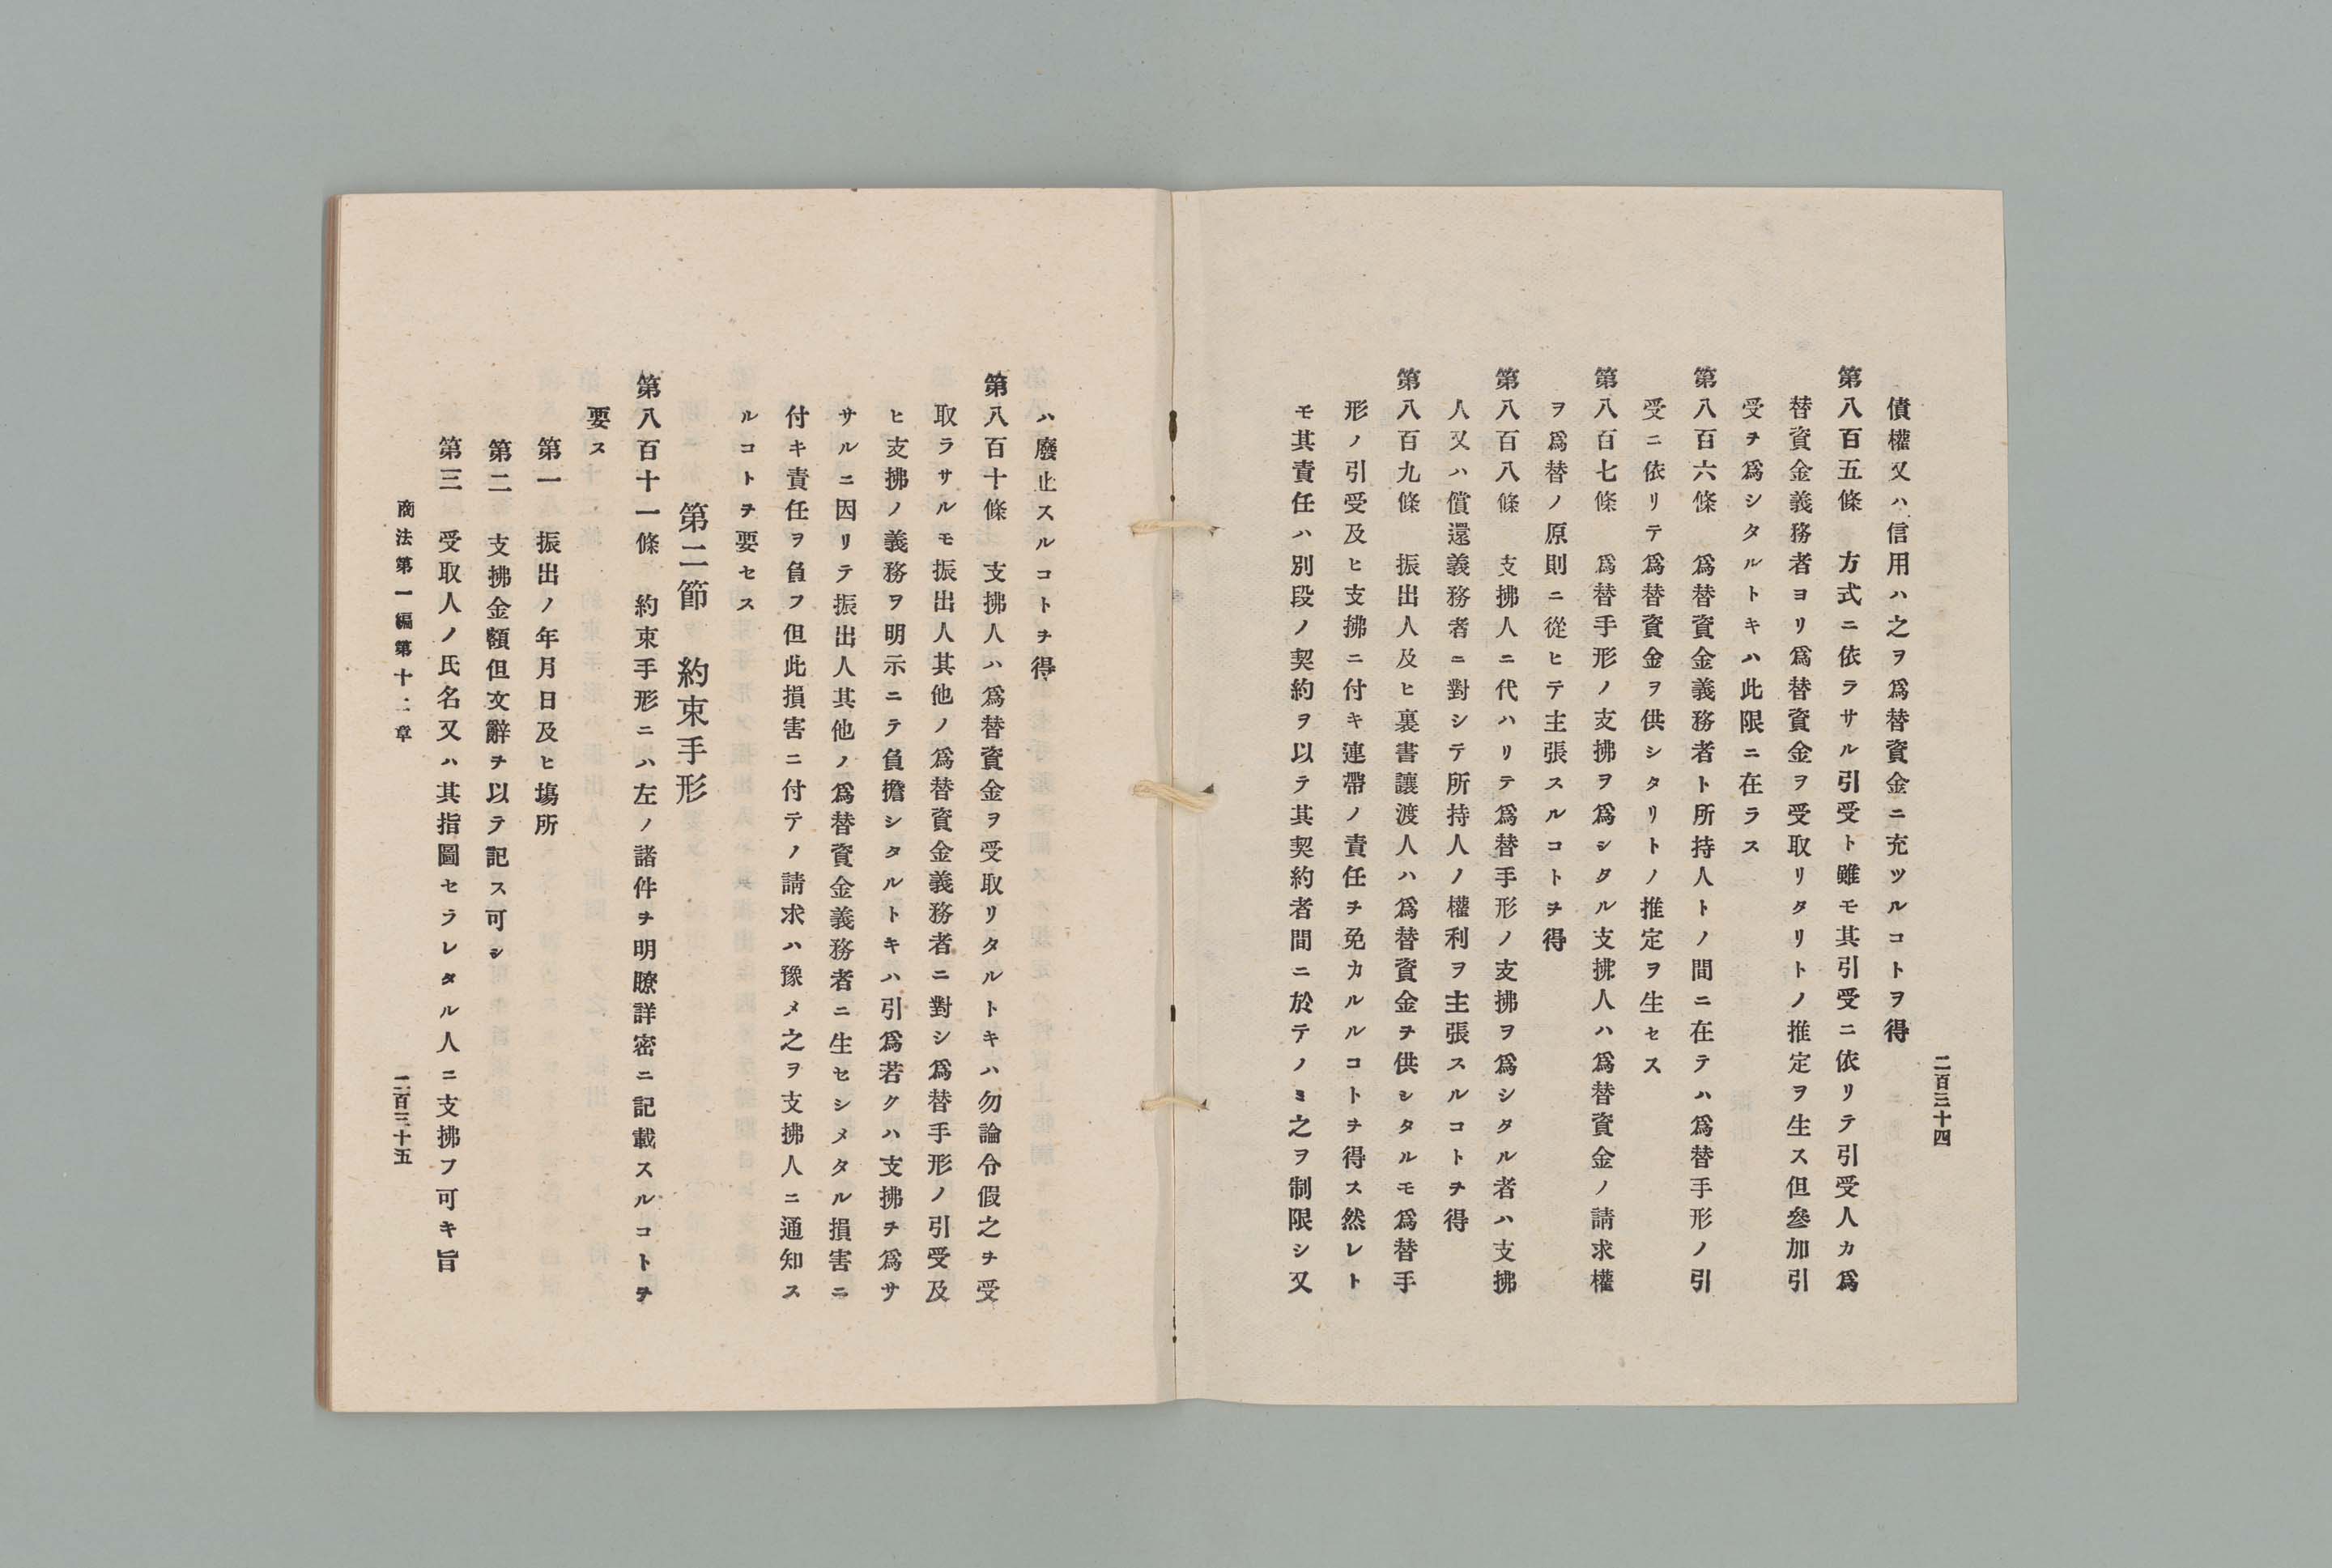 二百三十四
債權又ハ信用ハ之ヲ爲替資金ニ充ツルコトヲ得
第八百五條　方式ニ依ラサル引受ト雖モ其引受ニ依リテ引受人カ爲
替資金義務者ヨリ爲替資金ヲ受取リタリトノ推定ヲ生ス但參加引
受ヲ爲シタルトキハ此限ニ在ラス
第八百六條　爲替資金義務者ト所持人トノ間ニ在テハ爲替手形ノ引
受ニ依リテ爲替資金ヲ供シタリトノ推定ヲ生セス
第八百七條　爲替手形ノ支拂ヲ爲シタル支拂人ハ爲替資金ノ請求權
ヲ爲替ノ原則ニ從ヒテ主張スルコトヲ得
第八百八條　支拂人ニ代ハリテ爲替手形ノ支拂ヲ爲シタル者ハ支拂
人又ハ償還義務者ニ對シテ所持人ノ權利ヲ主張スルコトヲ得
第八百九條　振出人及ヒ裏書讓渡人ハ爲替資金ヲ供シタルモ爲替手
形ノ引受及ヒ支拂ニ付キ連帶ノ責任ヲ免カルルコトヲ得ス然レト
モ其責任ハ別段ノ契約ヲ以テ其契約者間ニ於テノミ之ヲ制限シ又
ハ廢止スルコトヲ得
第八百十條　支拂人ハ爲替資金ヲ受取リタルトキハ勿論令假之ヲ受
取ラサルモ振出人其他ノ爲替資金義務者ニ對シ爲替手形ノ引受及
ヒ支拂ノ義務ヲ明示ニテ負擔シタルトキハ引爲若クハ支拂ヲ爲サ
サルニ因リテ振出人其他ノ爲替資金義務者ニ生セシメタル損害ニ
付キ責任ヲ負フ但此損害ニ付テノ請求ハ豫メ之ヲ支拂人ニ通知ス
ルコトヲ要セス
第二節　約束手形
第八百十一條　約束手形ニハ左ノ諸件ヲ明瞭詳密ニ記載スルコトヲ
要ス
第一　振出ノ年月日及ヒ塲所
第二　支拂金額但文辭ヲ以テ記ス可シ
第三　受取人ノ氏名又ハ其指圖セラレタル人ニ支拂フ可キ旨
商法第一編第十二章
二百三十五